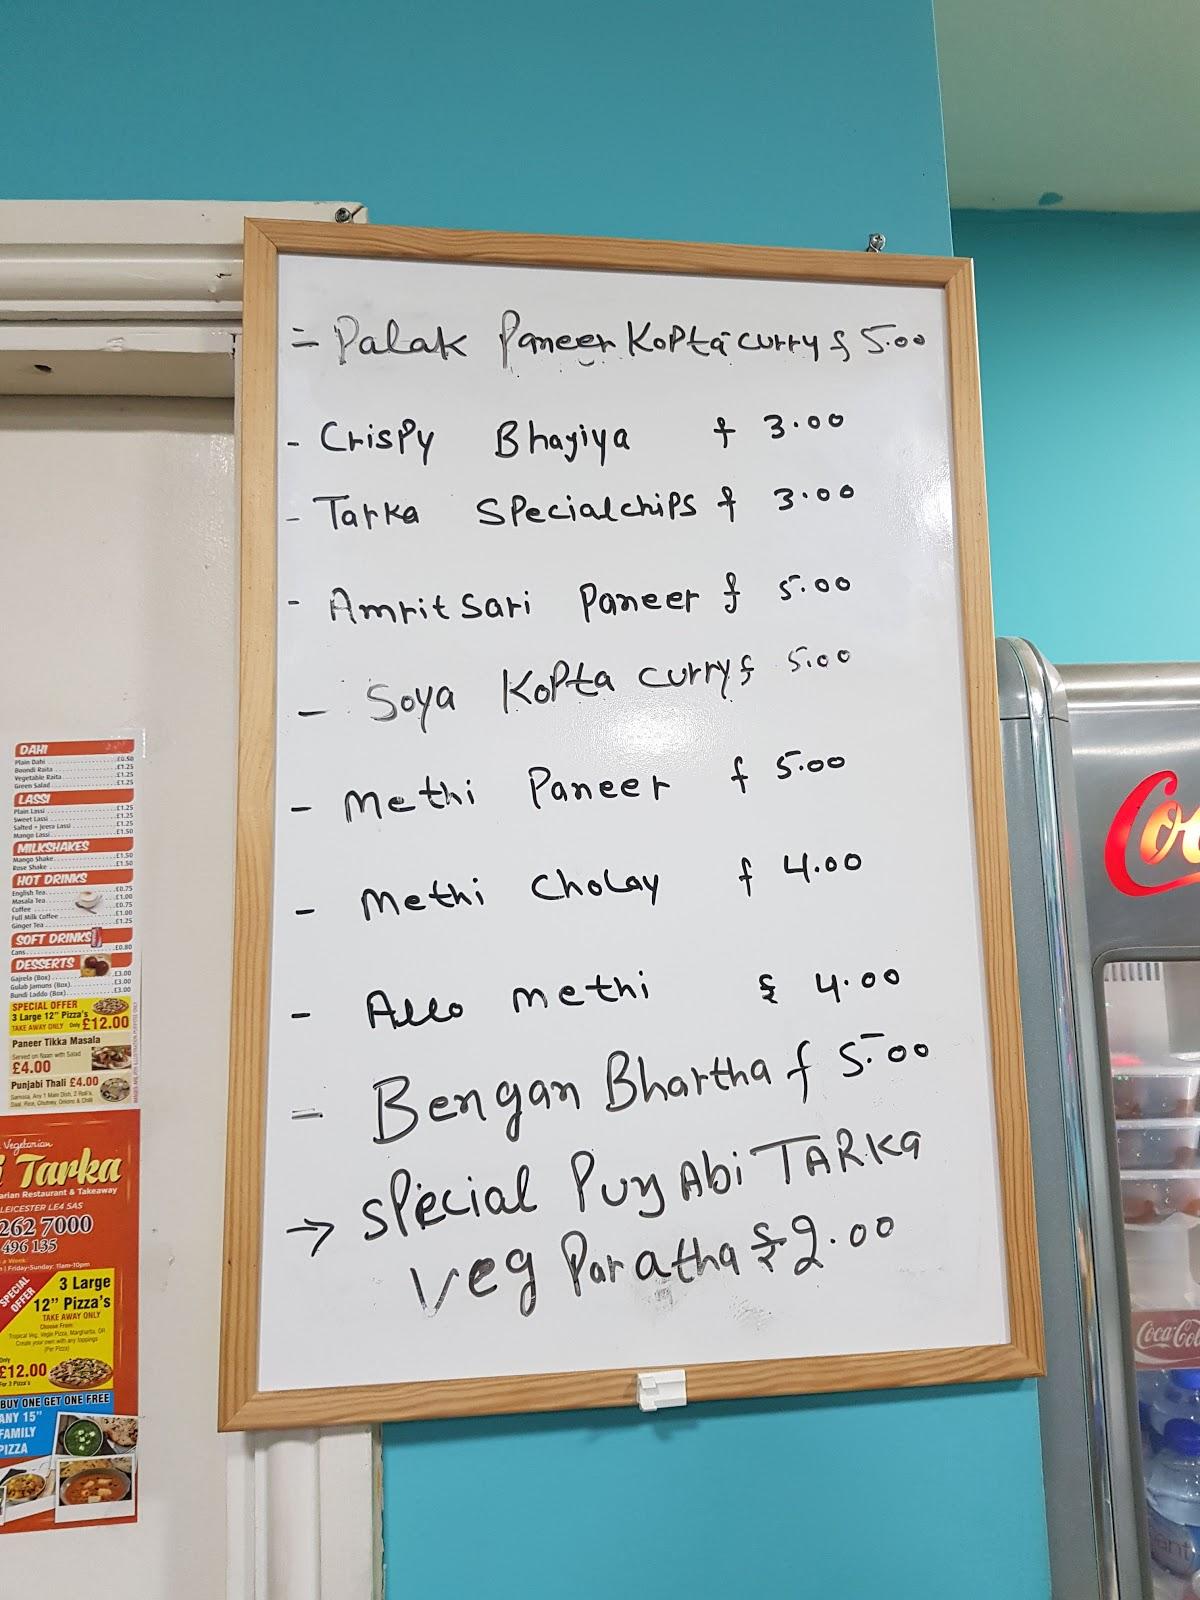 = Palak Paneer Kopta curry £ 5.00
- Crispy Bhajiya £ 3.00
- Tarka Specialchips £ 3.00
- Amritsari Paneer £ 5.00
- Soya Kopta curry £ 5.00
- Methi Paneer £ 5.00
- Methi Cholay £ 4.00
- Aloo methi £ 4.00
- Bengan Bhartha £ 5.00
→ Special PunjAbi TARKA
Veg Paratha £2.00
DAHI
Plain Dahi £0.50
Boondi Raita £1.25
Vegetable Raita £1.25
Green Salad £1.25
LASSI
Plain Lassi £1.25
Sweet Lassi £1.25
Salted + Jeera Lassi £1.25
Mango Lassi £1.50
MILKSHAKES
Mango Shake £1.50
Rose Shake £1.50
HOT DRINKS
English Tea £0.75
Masala Tea £1.00
Coffee £0.75
Full Milk Coffee £1.00
Ginger Tea £1.25
SOFT DRINKS
Cans £0.80
DESSERTS
Gajrela (Box) £3.00
Gulab Jamuns (Box) £3.00
Bundi Laddo (Box) £3.00
SPECIAL OFFER
3 Large 12" Pizza's
TAKE AWAY ONLY Only £12.00
Paneer Tikka Masala
Served on Naan with Salad
£4.00
Punjabi Thali £4.00
Samosa, Any 1 Main Dish, 2 Roti's,
Daal, Rice, Chutney, Onions & Chilli
Vegetarian
i Tarka
arian Restaurant & Takeaway
LEICESTER LE4 5AS
262 7000
496 135
a Week:
| Friday-Sunday: 11am-10pm
SPECIAL OFFER
3 Large
12" Pizza's
TAKE AWAY ONLY
Choose From:
Tropical Veg, Vegie Pizza, Margharita, OR
Create your own with any toppings
(Per Pizza)
Only
£12.00
For 3 Pizza's
BUY ONE GET ONE FREE
ANY 15"
FAMILY
PIZZA
Co
Coca-Col